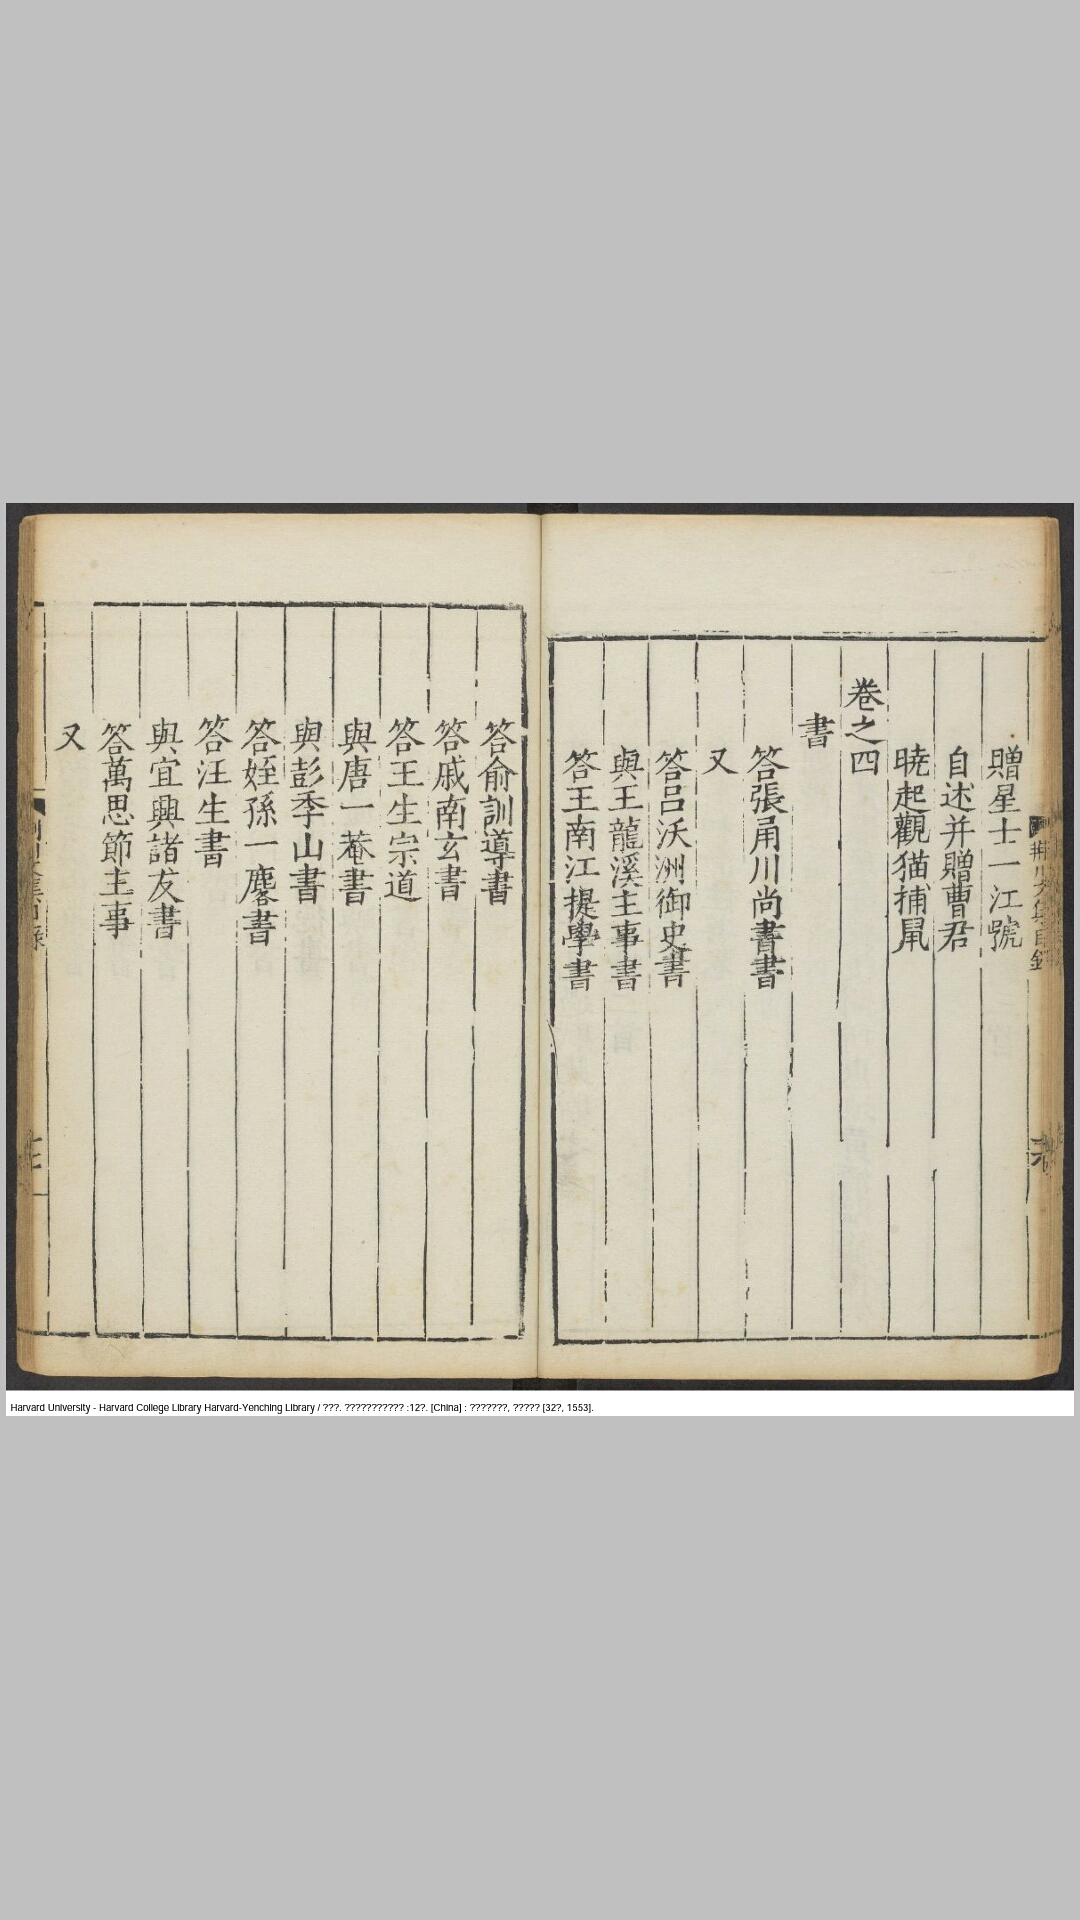 贈星士一江號
自述并贈曹君
暁起觀猫捕鼠
卷之四
書
答張甬川尚書書
又
答呂沃洲御史書
與王龍溪主事書
答王南江提學書
答俞訓導書
答戚南玄書
答王生宗道
與唐一菴書
與彭季山書
答姪孫一麐書
答汪生書
與宜興諸友書
答萬思節主事
又
Harvard University - Harvard College Library Harvard-Yenching Library / ???. ??????????? :12?. [China] : ???????, ????? [32?, 1553].